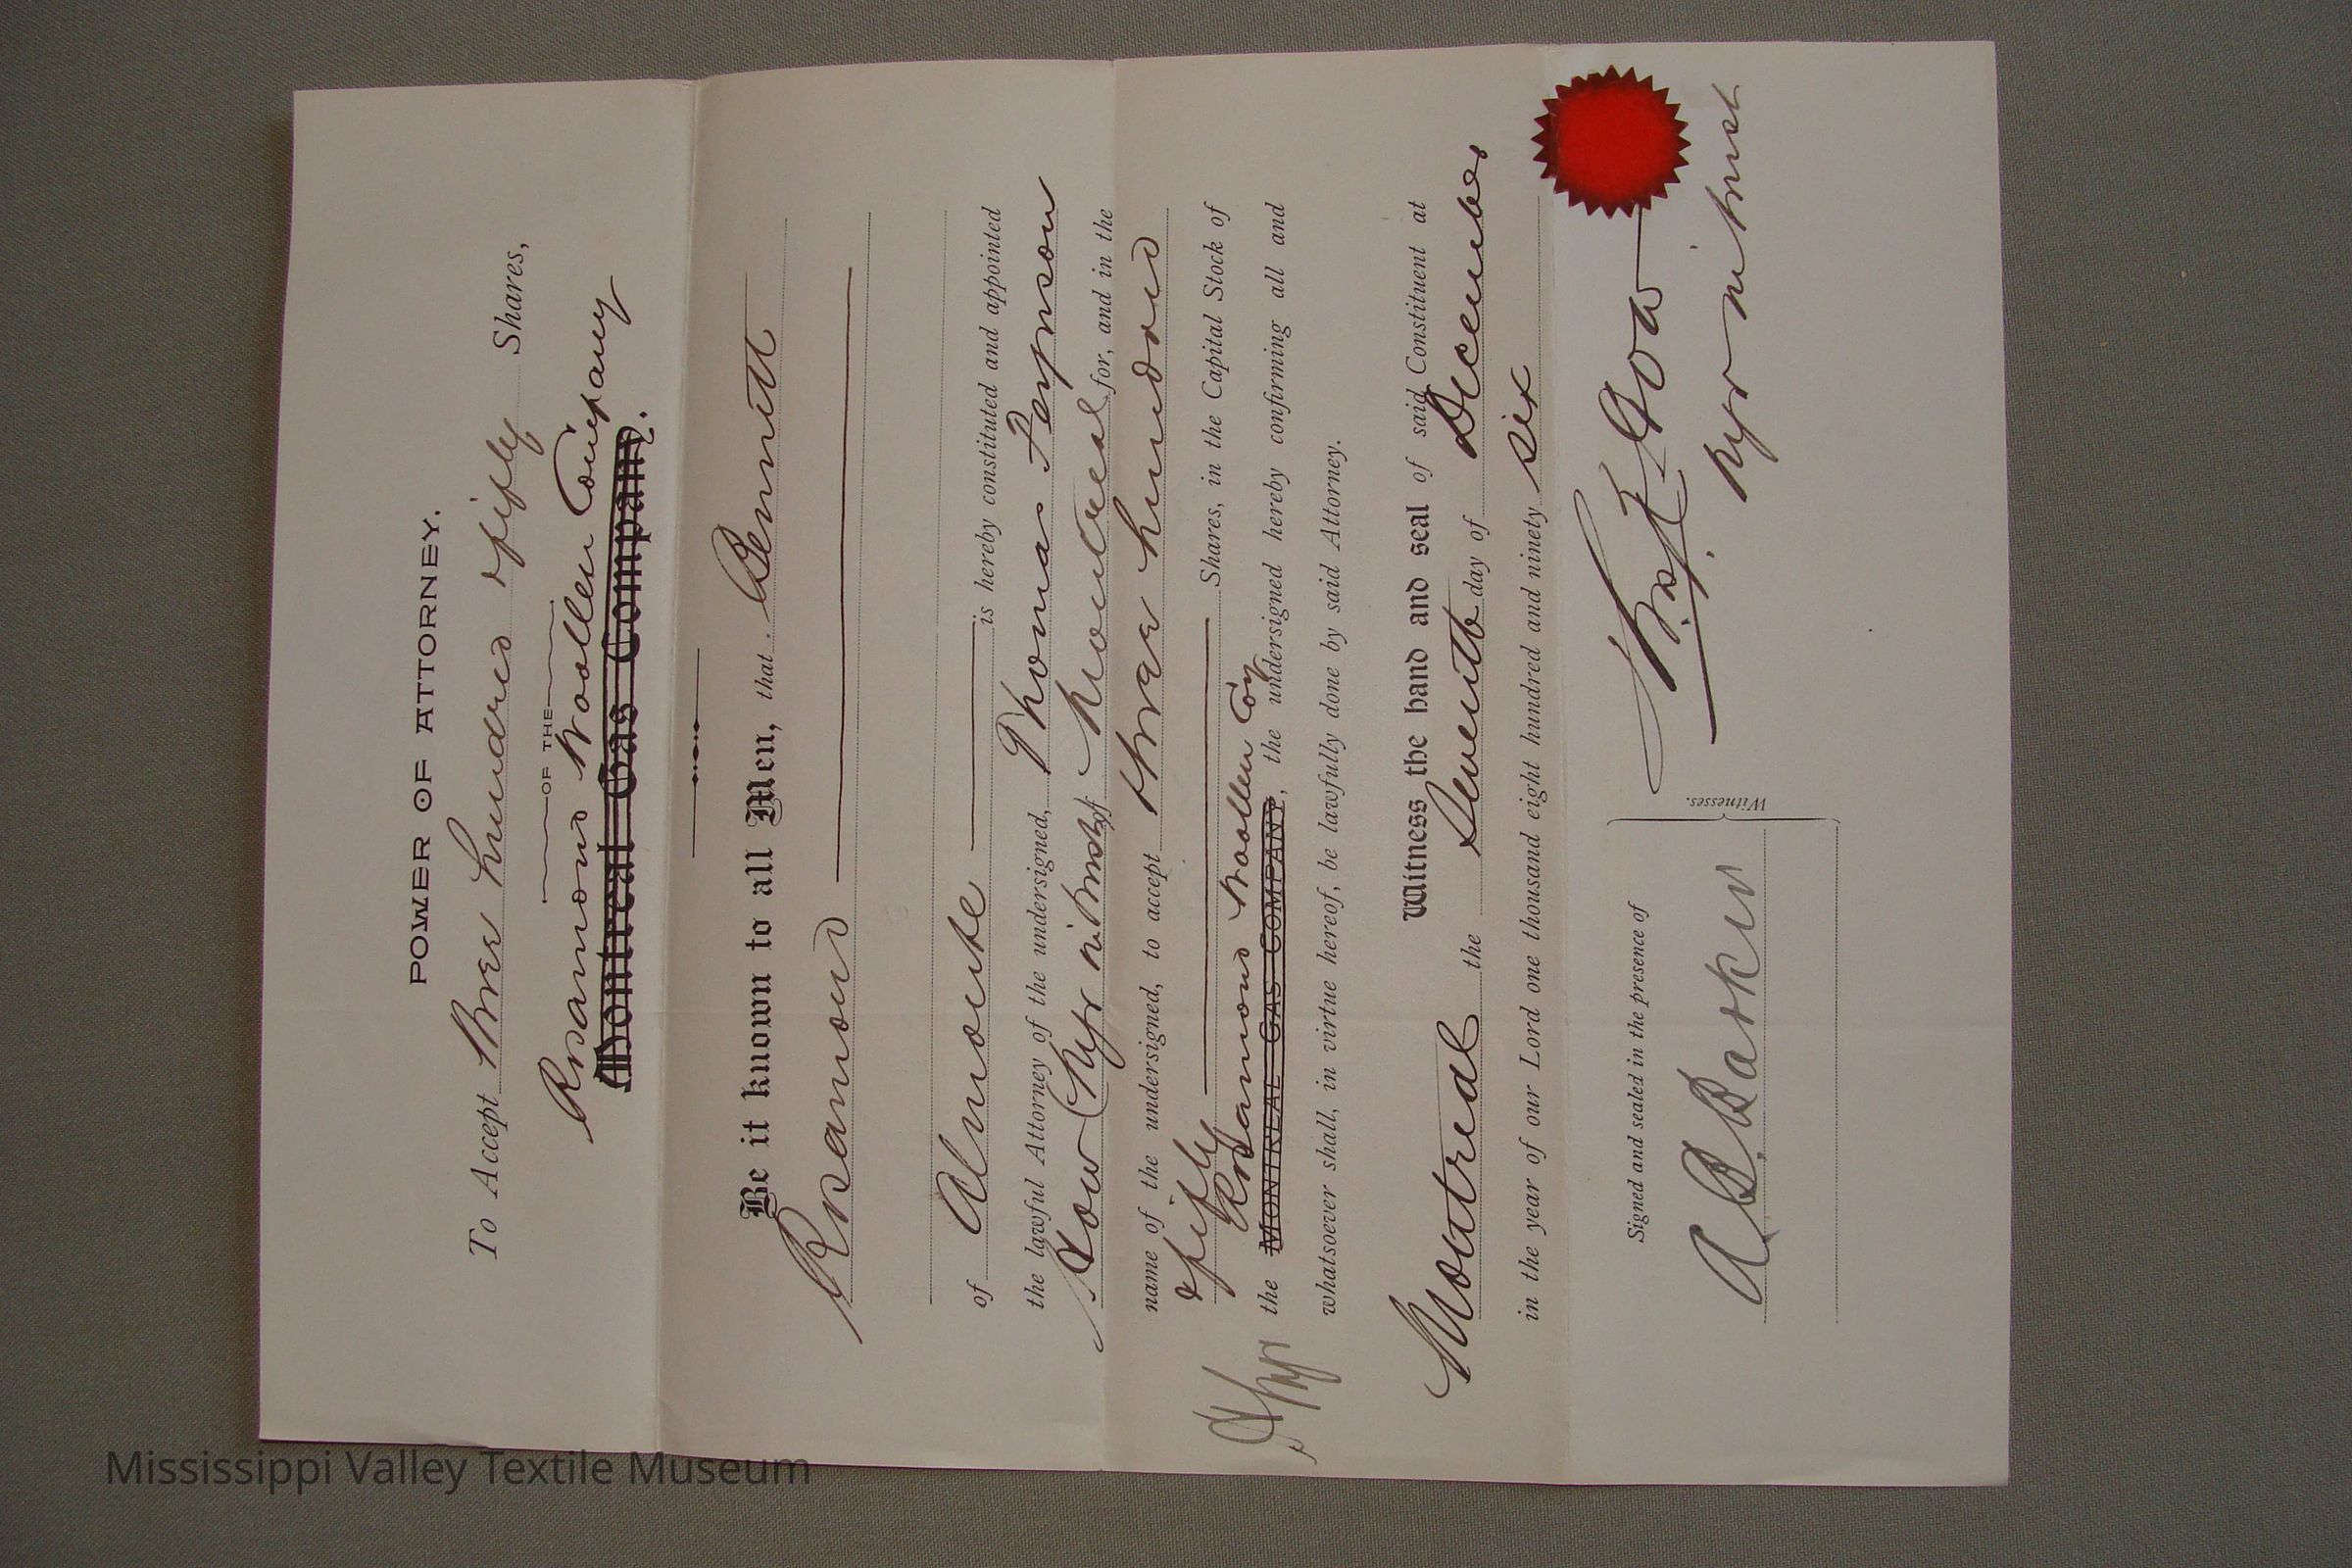 POWER OF ATTORNEY.
To Accept three hundred & fifty Shares,
OF THE
Rosamond Woollen Company
Montreal Gas Company.
Be it known to all Men, that Bennett
Rosamond
of Almonte is hereby constituted and appointed
the lawful Attorney of the undersigned, Thomas Fenson
Gow, Montreal for, and in the
name of the undersigned, to accept three hundred
& fifty Shares, in the Capital Stock of
Rosamond Woollen Coy
the MONTREAL GAS COMPANY, the undersigned hereby confirming all and
whatsoever shall, in virtue hereof, be lawfully done by said Attorney.
Witness the hand and seal of said Constituent at
Montreal the Seventh day of December
in the year of our Lord one thousand eight hundred and ninety six
Signed and sealed in the presence of
Gow
in trust
A. B. Parker
Witnesses.
Mississippi Valley Textile Museum